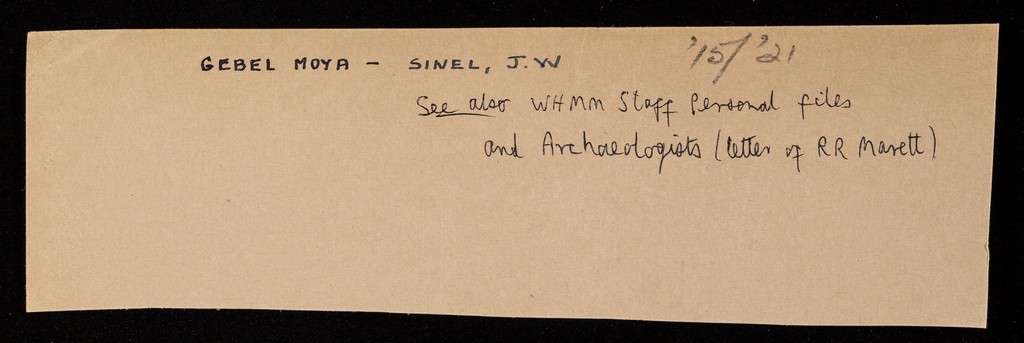 GEBEL MOYA - SINEL, J.W '15/'21
See also WHMM Staff Personal files
and Archaeologists (letter of RR Marett)